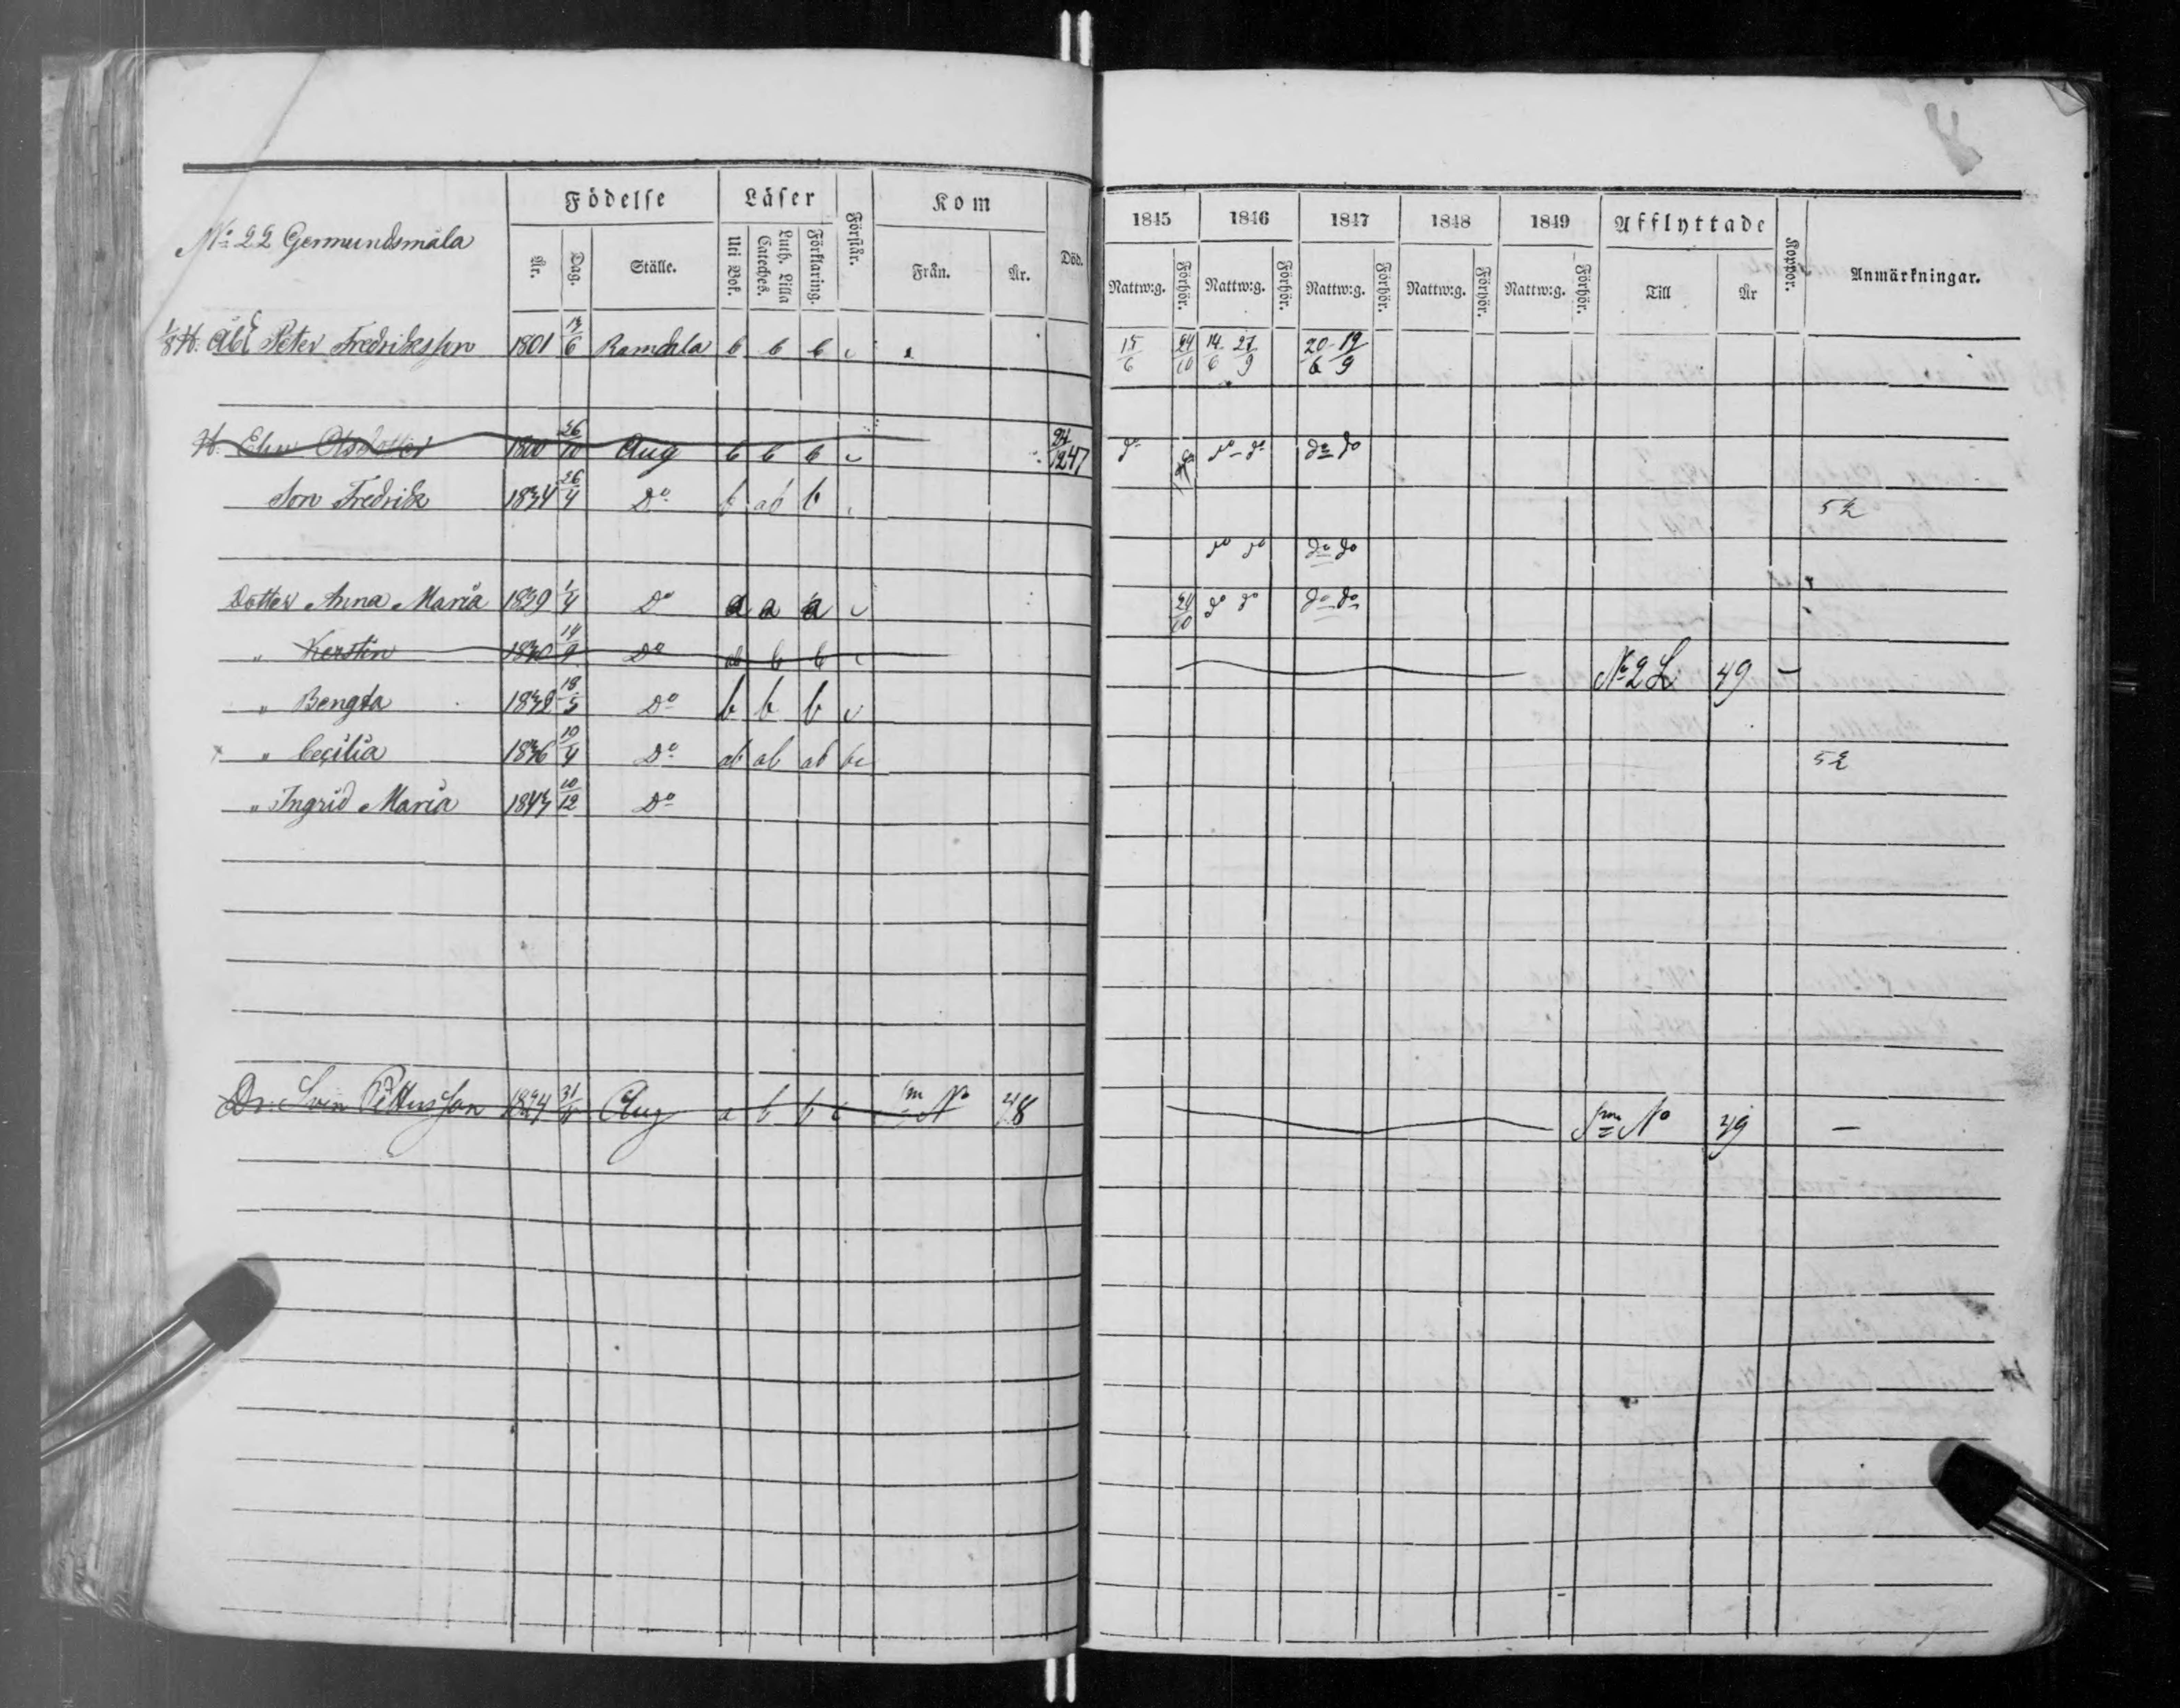 Födelse Läser Kom
No 22 Germundsmåla År. Dag. Ställe. Uti Bok. Luth. Lilla Cateches. Förklaring. Förstår. Från. År. Död.
1/8 H. Åbl Peter Fredriksson 1801 6 Ramdala b b b
H. Elin Olsdotter 1800 26/10 Aug b b b 24/12 47
Son Fredrik 1834 26/4 Do b ab b
Dotter Anna Maria 1829 1/4 Do a a a
" Kerstin 1830 14/9 Do ab b b
" Bengta 1832 18/5 Do b b b
" Cecilia 1836 10/4 Do ab ab ab
" Ingrid Maria 1843 10/12 Do
Dr. Sven Pettersson 1824 31 Aug a b b Sm No 48
1845 1846 1847 1848 1849 Afflyttade
Nattw:g. Förhör. Nattw:g. Förhör. Nattw:g. Förhör. Nattw:g. Förhör. Nattw:g. Förhör. Till År Koppor. Anmärkningar.
15/6 24/10 14/6 27/9 20/6 19/9
do do do do do
52
do do do do
24/10 do do do do
No 2 L 49 –
52
Sm No 49 –